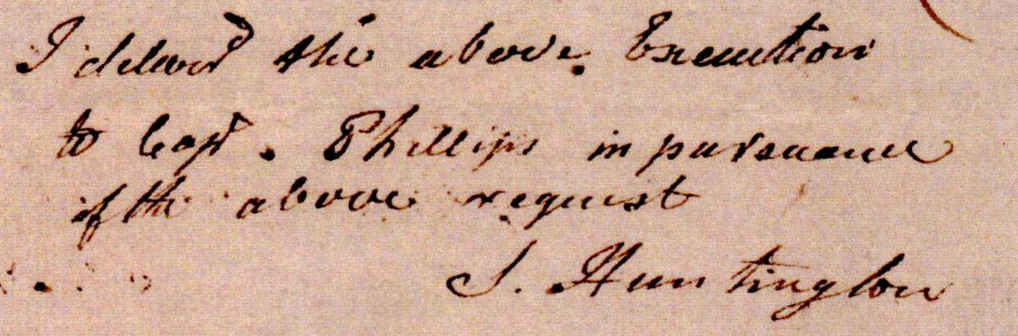 I deliverd the above Execution
to Capt. Phillips in pursuance
of the above request
S. Huntington